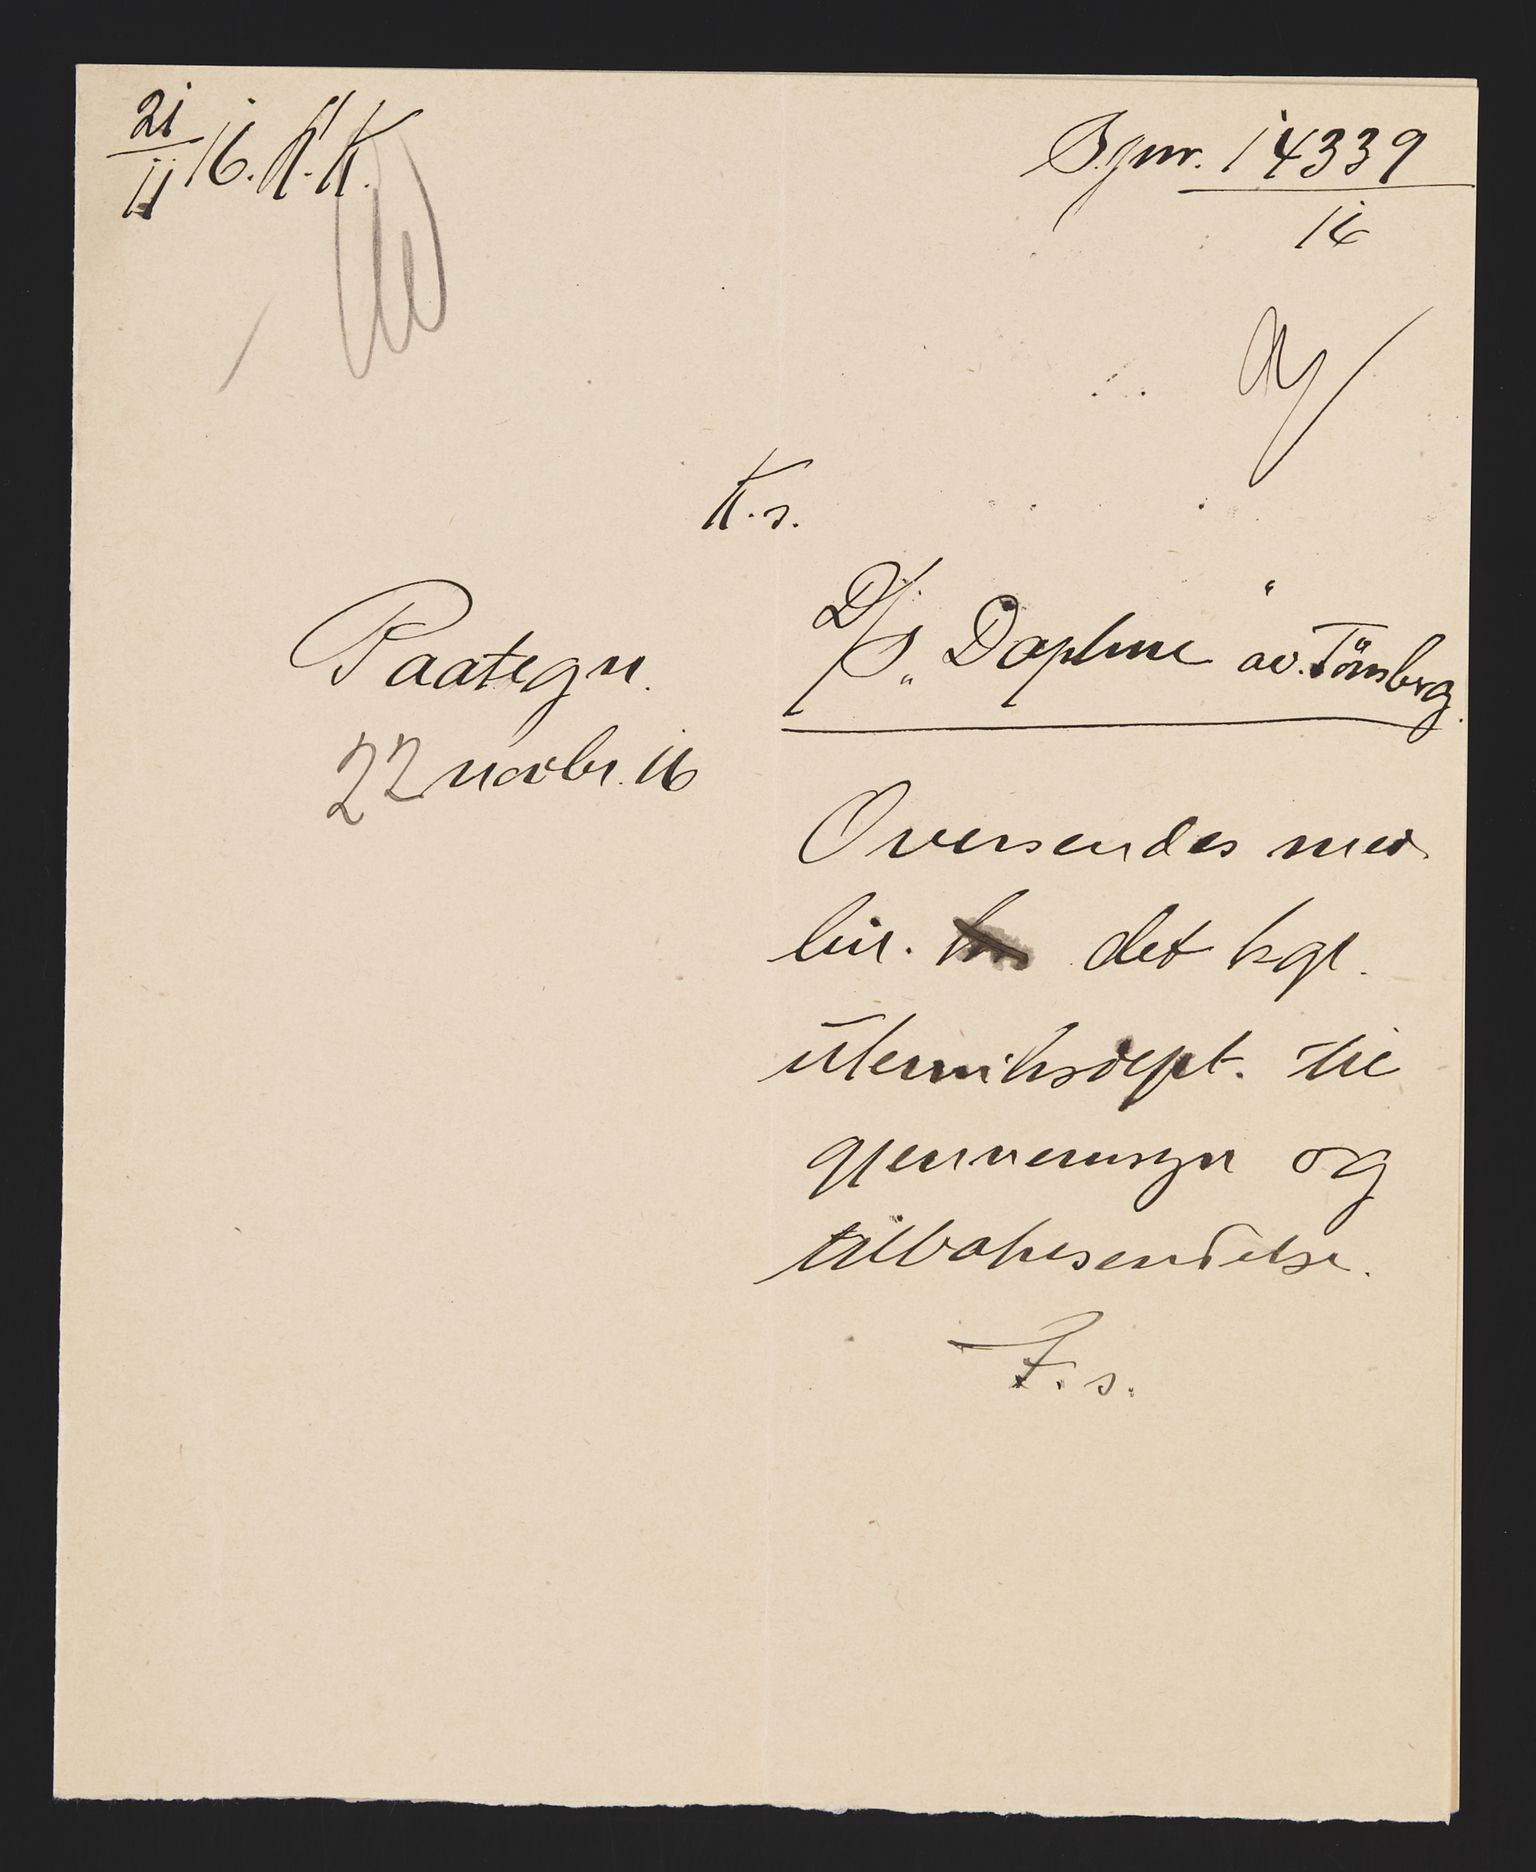 21/11 16. K.K.
B.jnr. 14339
16
K.s.
Paategn.
22 novbr. 16
D/S „Daphne“ av Tönsberg.
Oversendes med
bil. det kgl.
utenriksdept. til
gjennemsyn og
tilbakesendelse.
F. s.